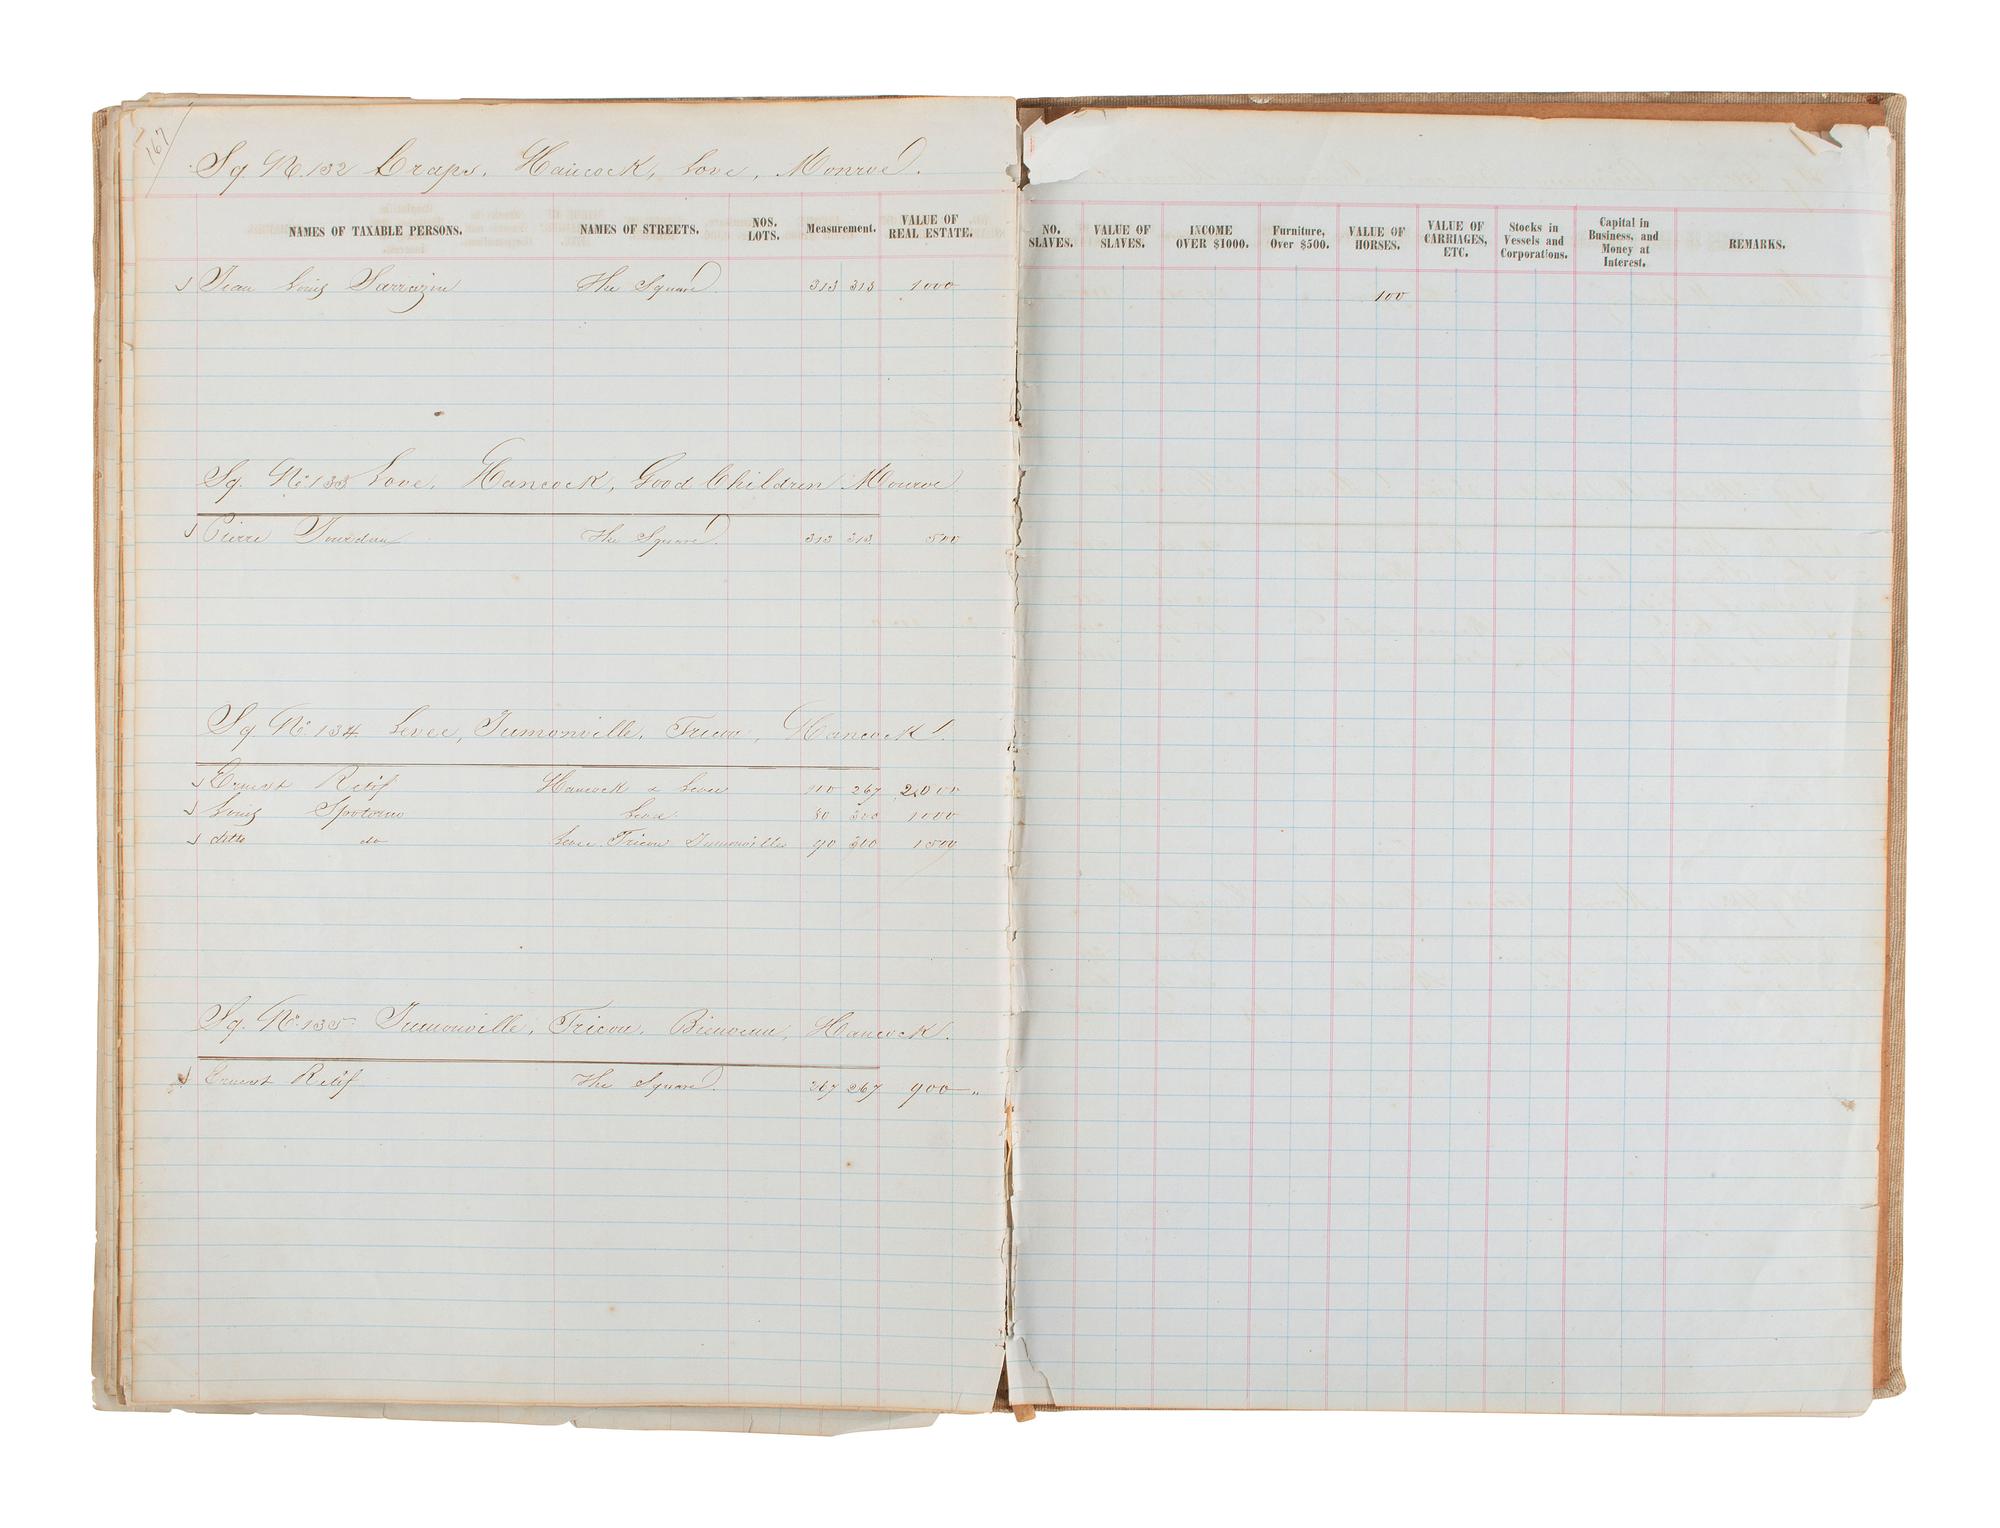 167
Sq. No. 132 Craps, Hancock, Love, Monroe.
NAMES OF TAXABLE PERSONS. NAMES OF STREETS. NOS. LOTS. Measurement. VALUE OF REAL ESTATE. NO. SLAVES. VALUE OF SLAVES. INCOME OVER $1000. Furniture, Over $500. VALUE OF HORSES. VALUE OF CARRIAGES, ETC. Stocks in Vessels and Corporations. Capital in Business, and Money at Interest. REMARKS.
Jean Louis Sarrazin The Square 313 313 1000 100
Sq. No. 133 Love, Hancock, Good Children Monroe
Pierre Jourdan The Square 313 313 500
Sq. No. 134 Levee, Jumonville, Tricou, Hancock.
Ernest Retif Hancock & Levee 267 2000
Louis Spotorno Levee 80 300 1000
ditto do Levee Tricou Jumonville 90 300 1500
Sq. No. 135 Jumonville, Tricou, Bienvenu, Hancock.
Ernest Retif The Square 267 267 900 "